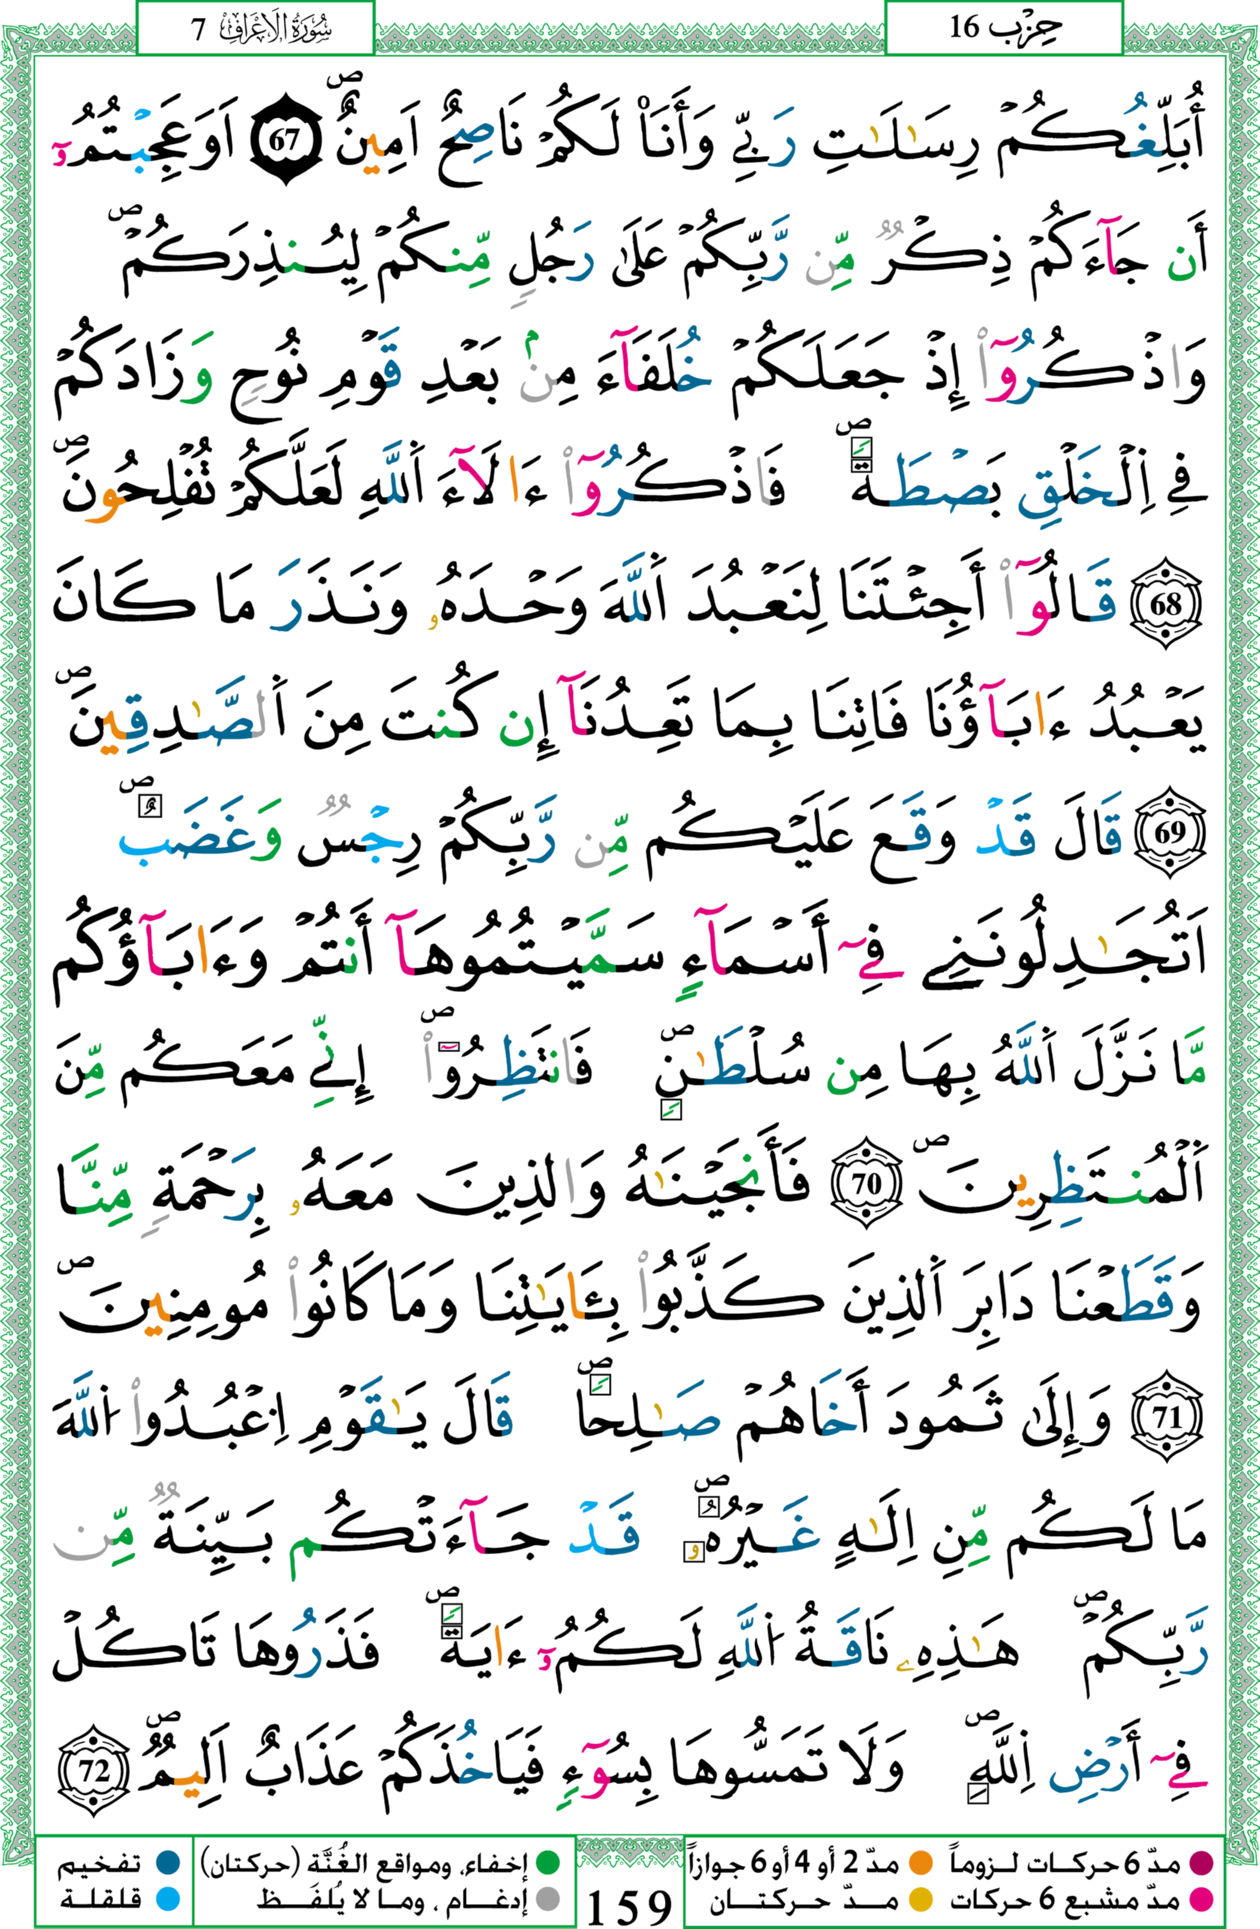 حِزْب 16
سُورَةُ الْأَعْرَافِ 7
أُبَلِّغُكُمْ رِسَٰلَٰتِ رَبِّے وَأَنَا۠ لَكُمْ نَاصِحٌ اَمِينٌ ۖ 67 اَوَعَجِبْتُمُۥٓ
أَن جَآءَكُمْ ذِكْرٞ مِّن رَّبِّكُمْ عَلَىٰ رَجُلٖ مِّنكُمْ لِيُنذِرَكُمْ ۖ
وَاذْكُرُوٓا۟ إِذْ جَعَلَكُمْ خُلَفَآءَ مِنۢ بَعْدِ قَوْمِ نُوحٖ وَزَادَكُمْ
فِے اِ۬لْخَلْقِ بَصْطَةٗ ۖ فَاذْكُرُوٓا۟ ءَالَآءَ اَ۬للَّهِ لَعَلَّكُمْ تُفْلِحُونَ ۖ
68 قَالُوٓا۟ أَجِئْتَنَا لِنَعْبُدَ اَ۬للَّهَ وَحْدَهُۥ وَنَذَرَ مَا كَانَ
يَعْبُدُ ءَابَآؤُنَا فَاتِنَا بِمَا تَعِدُنَآ إِن كُنتَ مِنَ اَ۬لصَّٰدِقِينَ ۖ
69 قَالَ قَدْ وَقَعَ عَلَيْكُم مِّن رَّبِّكُمْ رِجْسٞ وَغَضَبٌ ۖ
اَتُجَٰدِلُونَنِے فِےٓ أَسْمَآءٖ سَمَّيْتُمُوهَآ أَنتُمْ وَءَابَآؤُكُم
مَّا نَزَّلَ اَ۬للَّهُ بِهَا مِن سُلْطَٰنٖ ۖ فَانتَظِرُوٓا۟ ۖ إِنِّے مَعَكُم مِّنَ
اَ۬لْمُنتَظِرِينَ ۖ 70 فَأَنجَيْنَٰهُ وَالذِينَ مَعَهُۥ بِرَحْمَةٖ مِّنَّا
وَقَطَعْنَا دَابِرَ اَ۬لذِينَ كَذَّبُوا۟ بِـَٔايَٰتِنَا وَمَا كَانُوا۟ مُومِنِينَ ۖ
71 وَإِلَىٰ ثَمُودَ أَخَاهُمْ صَٰلِحاٗ ۖ قَالَ يَٰقَوْمِ اِ۟عْبُدُوا۟ اُ۬للَّهَ
مَا لَكُم مِّنِ اِلَٰهٍ غَيْرُهُۥ ۖ قَدْ جَآءَتْكُم بَيِّنَةٞ مِّن
رَّبِّكُمْ ۖ هَٰذِهِۦ نَاقَةُ اُ۬للَّهِ لَكُمُۥٓ ءَايَةٗ ۖ فَذَرُوهَا تَاكُلْ
فِےٓ أَرْضِ اِ۬للَّهِ ۖ وَلَا تَمَسُّوهَا بِسُوٓءٖ فَيَاخُذَكُمْ عَذَابٌ اَلِيمٌ ۖ 72
مدّ 6 حركات لـزوماً مدّ 2 أو 4 أو 6 جوازاً
مدّ مشبع 6 حركات مدّ حـركتـان
159
إخفاء، ومواقع الغُنَّة (حركتان) تفخيم
إدغام ، ومـا لا يُلفَـظ قلقلة